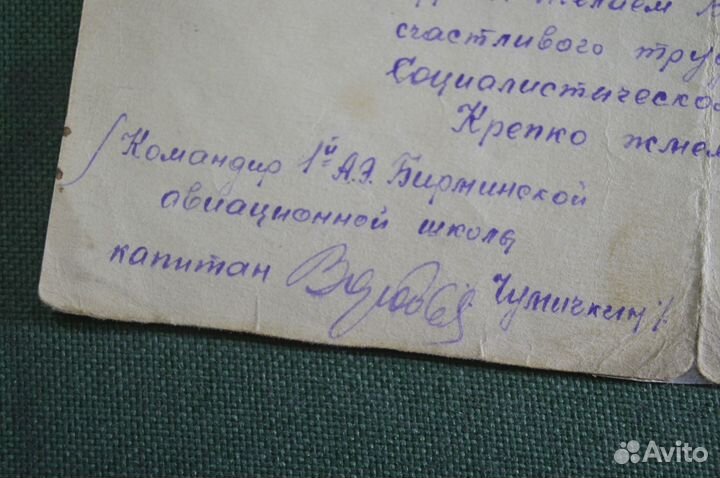 желаем
счастливого
Социалистической
Крепко жмем
Командир 1й А.Э. Бирминской
авиационной школы
капитан Чумичкин
Avito